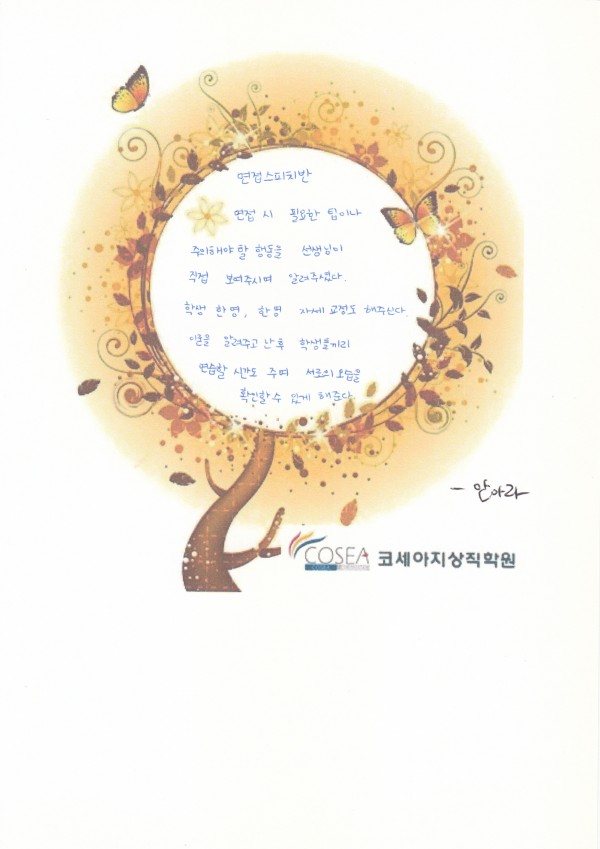 면접스피치반
면접 시 필요한 팁이나
주의해야 할 행동을 선생님이
직접 보여주시며 알려주셨다.
학생 한명, 한명 자세 교정도 해주신다.
이론을 알려주고 난 후 학생들끼리
연습할 시간도 주며 서로의 모습을
확인할 수 있게 해준다.
- 안아라
COSEA 코세아지상직학원
COSEA